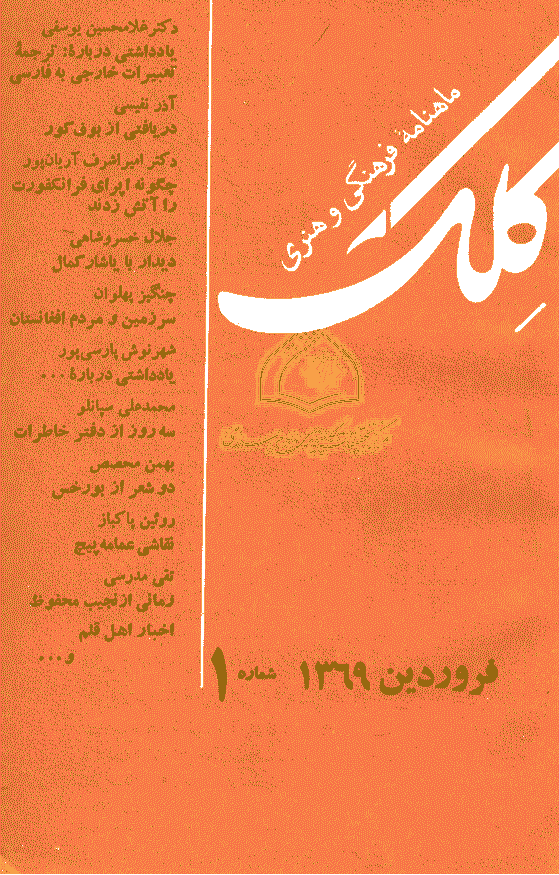 ماهنامهٔ فرهنگی و هنری
کلک
دکتر غلامحسین یوسفی
یادداشتی دربارهٔ: ترجمهٔ
تعبیرات خارجی به فارسی
آذر نفیسی
دریافتی از بوف کور
دکتر امیراشرف آریان‌پور
چگونه اپرای فرانکفورت
را آتش زدند
جلال خسروشاهی
دیدار با یاشار کمال
چنگیز پهلوان
سرزمین و مردم افغانستان
شهرنوش پارسی‌پور
یادداشتی دربارهٔ ...
محمدعلی سپانلو
سه روز از دفتر خاطرات
بهمن محصص
دو شعر از بورخس
روئین پاکباز
نقاشی عمامه‌پیچ
تقی مدرسی
زمانی از نجیب محفوظ
اخبار اهل قلم
و ...
فروردین ۱۳۶۹ شماره ۱